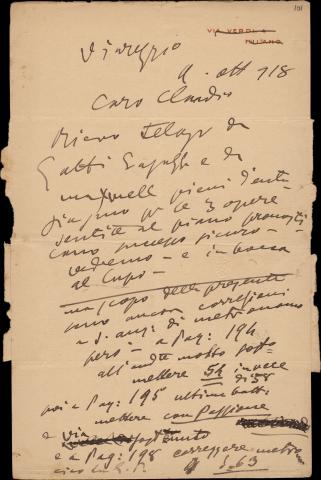 101
VIA VERDI 4
MILANO
Viareggio
4 ott 918
Caro Claudio
Ricevo telegr da
Gatti e da
Maxwell pieni d'entu
siasmo per le 3 opere
sentite al piano pronosti
cano successo sicuro -
vedremo - e in bocca
al Lupo -
ma scopo della presente
sono ancora correzioni
a S. Ang: di metronomo
però - a Pag: 194
all'and.te molto sost.to
mettere 54 invece
di 58
poi a Pag: 195 ultima batt:
mettere con Passione
e via
e a Pag: 198 correggere metro
63